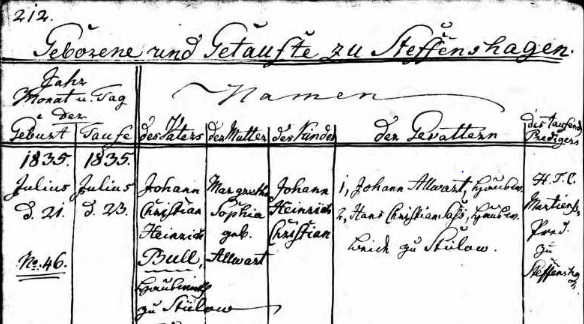 212.
Geborene und Getaufte zu Steffenshagen.
Jahr
Monat u. Tag
der
Namen
Geburt
Taufe
des Vaters
der Mutter
des Kindes
der Gevattern
des taufend.
Predigers
1835.
1835.
Julius
Julius
d. 21.
d. 23.
No. 46.
Johann
Christian
Heinrich
Bull,
zu Stülow
Margretha
Sophia
geb.
Allwart
Johann
Heinrich
Christian
1, Johann Allwart,
2, Hans Christian
zu Stülow.
H. T. C.
zu